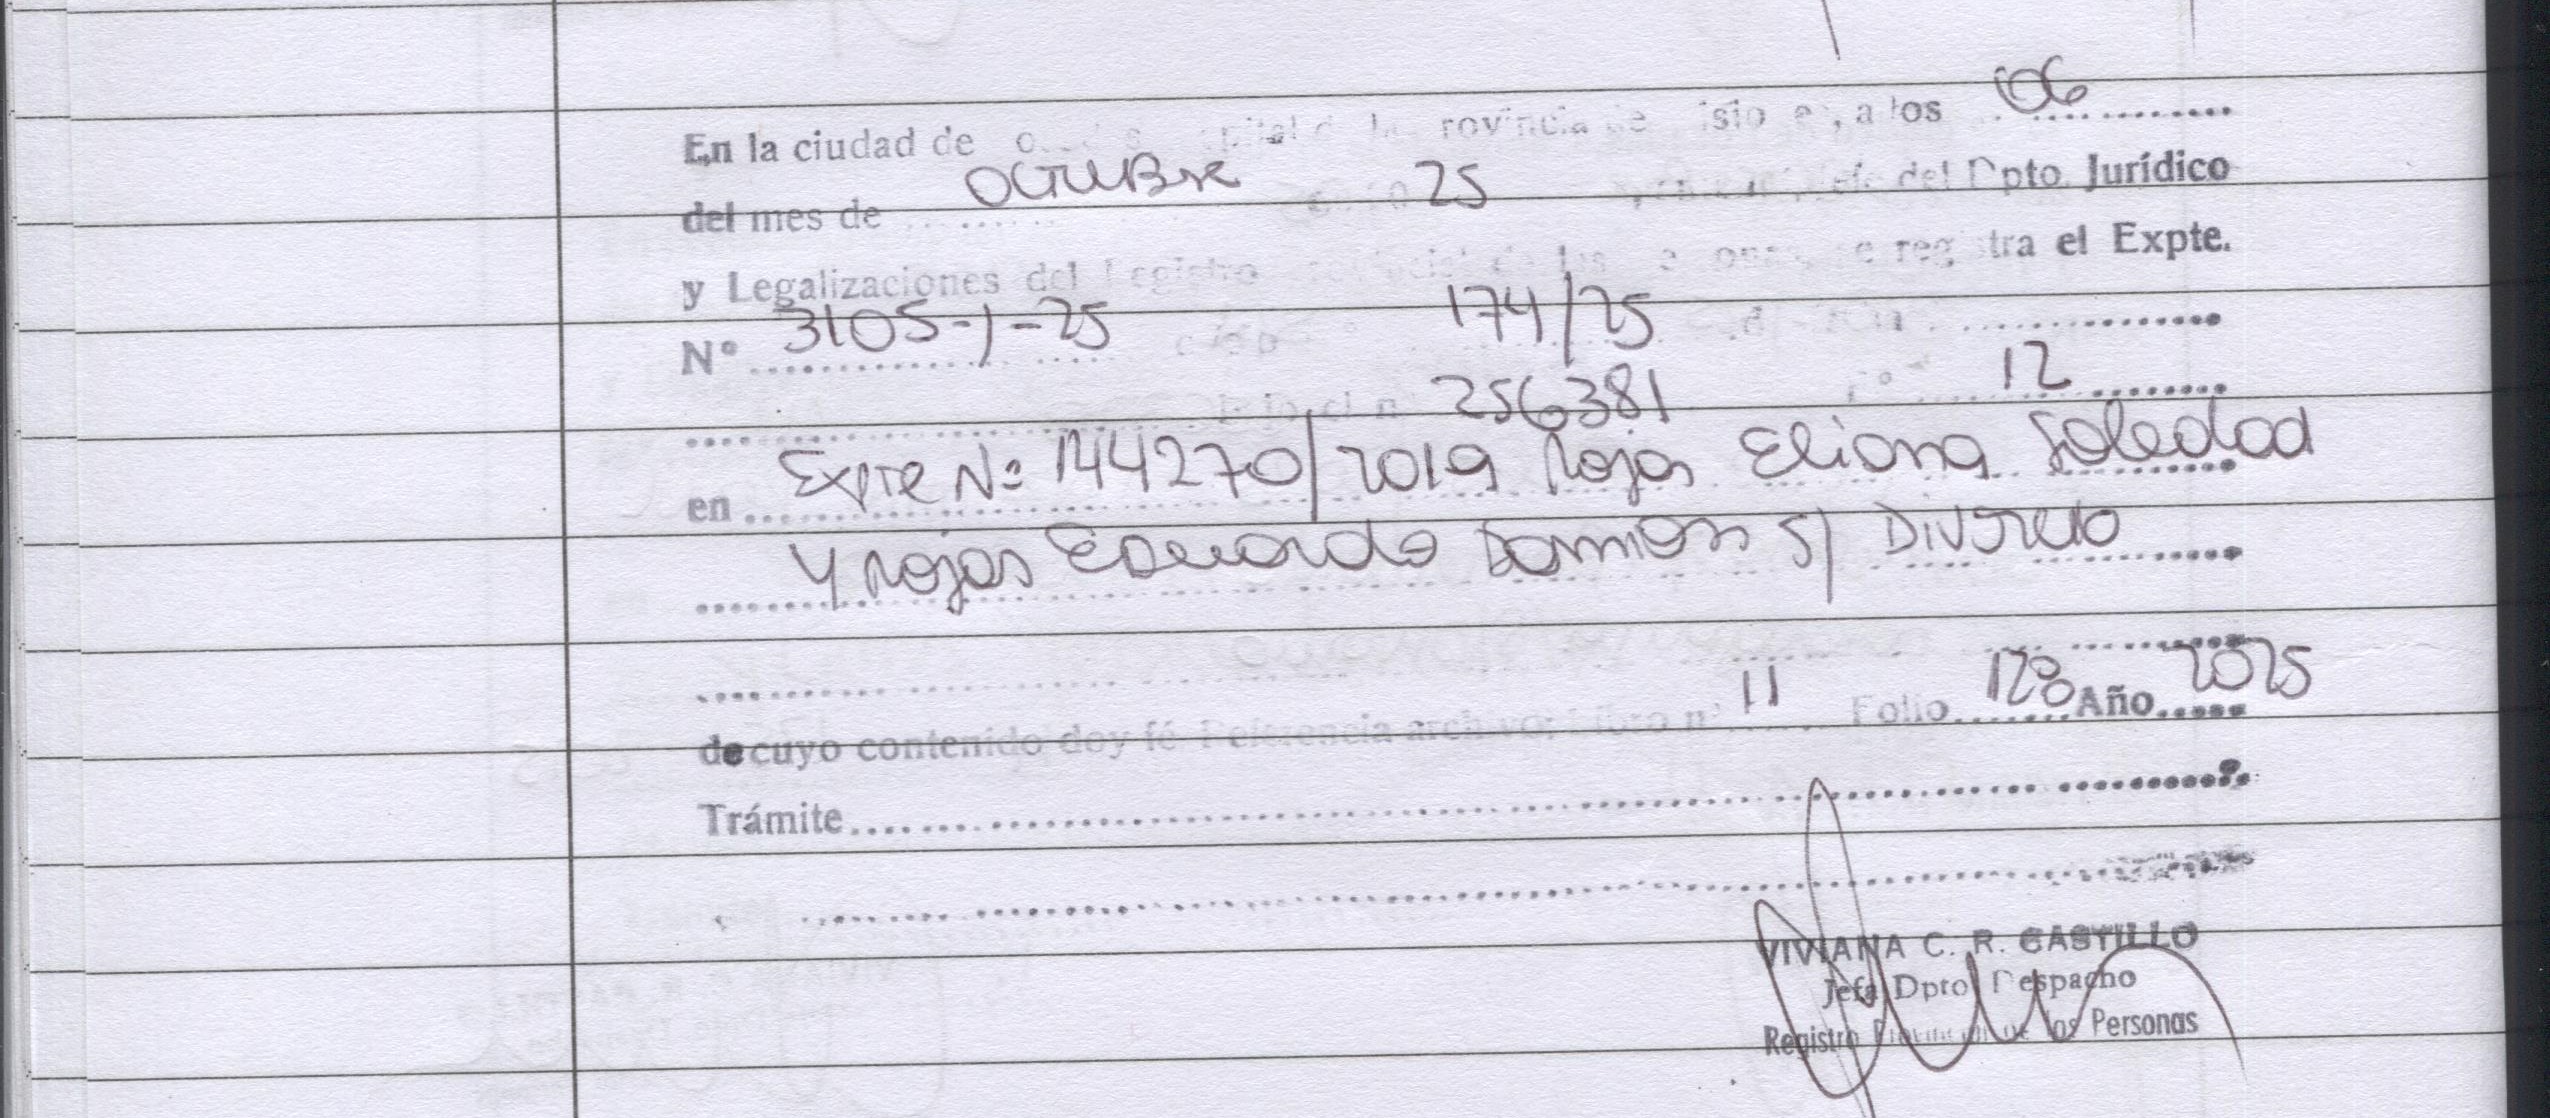 En la ciudad de a los 06
del mes de OCTUBRE 25 del Dpto. Jurídico
y Legalizaciones del Registro registra el Expte.
N° 3105-J-25 174/25
256381 12
en Expte Nº 144270/2019 Rojas Eliana Soledad
Y Rojas Eduardo Damian S/ Divorcio
de cuyo contenido doy fé Referencia archivo: Libro n° 11 Folio 128 Año 2025
Trámite
VIVIANA C. R. CASTILLO
Jefa Dpto Despacho
Registro Provincial de los Personas